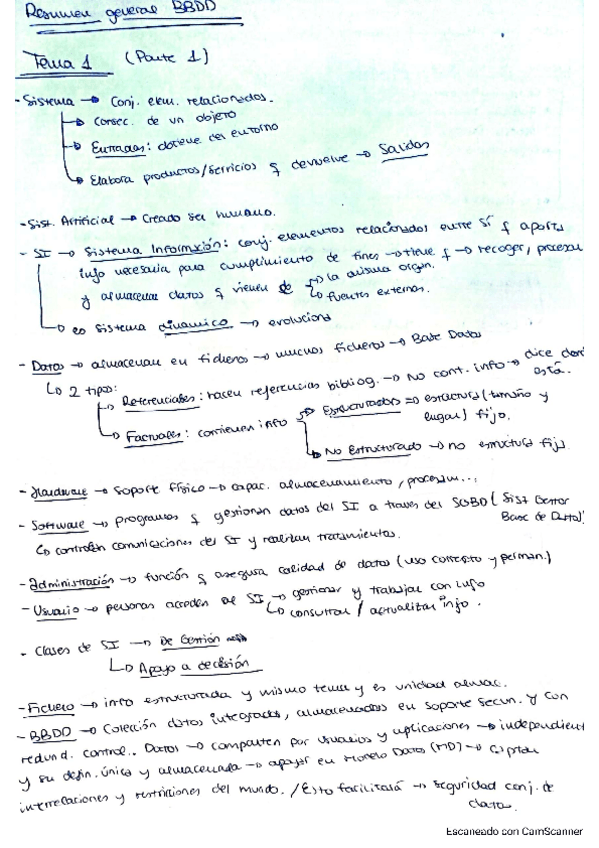 Resumen general BBDD
Tema 1 (Parte 1)
- Sistema → Conj. elem. relacionados.
→ Consec. de un objeto
→ Entradas: obtiene del entorno
→ Elabora productos/servicios q devuelve → Salidas
- Sist. Artificial → Creado ser humano.
- SI → Sistema Información: conj. elementos relacionados entre sí q aporta
info necesaria para cumplimiento de fines → tiene q → recoger, procesar
y almacenar datos q vienen de → la misma organ.
→ fuentes externas.
→ es sistema dinámico → evoluciona
- Datos → almacenan en ficheros → muchos ficheros → Base Datos
→ 2 tipos:
→ Referenciales: hacen referencias bibliog. → No cont. info → dice dond
está.
→ Factuales: contienen info → Estructurados ⇒ estructura (tamaño y
lugar) fijo.
→ No Estructurado → no estructura fija
- Hardware → soporte físico → capac. almacenamiento, procesam...
- Software → programas q gestionan datos del SI a través del SGBD (Sist Gestor
Base de Datos)
→ controlan comunicaciones del SI y realizan tratamientos.
- Administración → función q asegura calidad de datos (uso correcto y perman.)
- Usuario → personas acceden al SI → gestionar y trabajar con info
→ consultar / actualizar info.
- Clases de SI → De Gestión
→ Apoyo a decisión
- Fichero → info estructurada y mismo tema y es unidad almac.
- BBDD → Colección datos integrados, almacenados en soporte secun. y con
redund. control.. Datos → comparten por usuarios y aplicaciones → independient
y su defin. única y almacenada → apoyar en Modelo Datos (MD) → captar
interrelaciones y restricciones del mundo. / Esto facilitará → seguridad conj. de
datos.
Escaneado con CamScanner